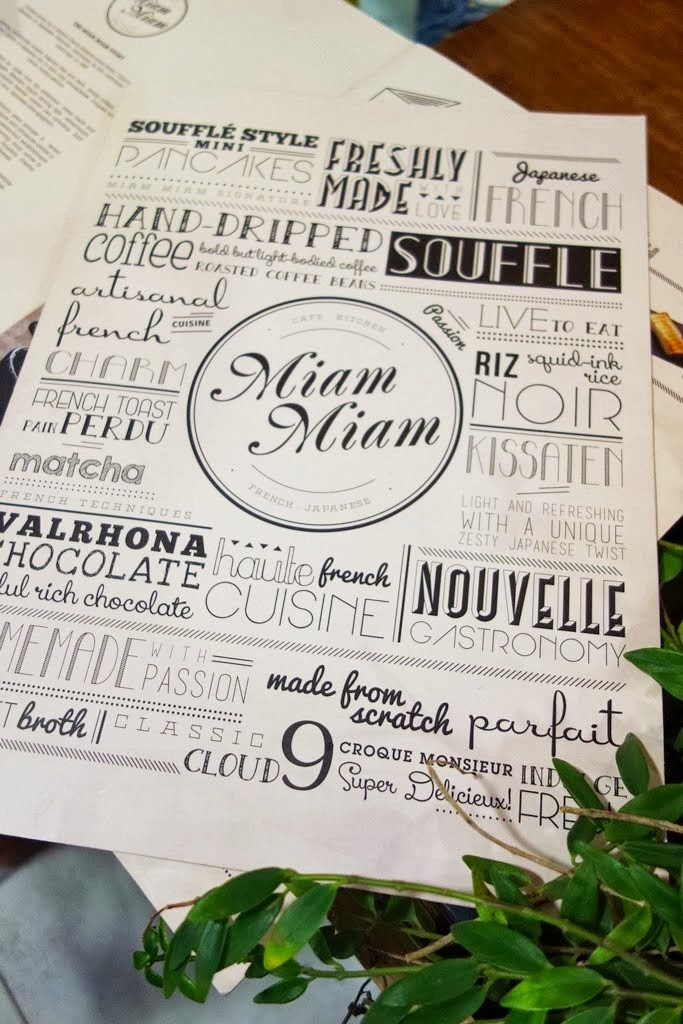 Miam
Miam
THE MIAM MIAM STORY
SOUFFLÉ STYLE
MINI
PANCAKES
MIAM MIAM SIGNATURE
FRESHLY
MADE WITH
LOVE
Japanese
FRENCH
HAND-DRIPPED
coffee bold but light-bodied coffee
ROASTED COFFEE BEANS
SOUFFLE
artisanal
french CUISINE
CHARM
FRENCH TOAST
PAIN PERDU
matcha
FRENCH TECHNIQUES
CAFE KITCHEN
Miam
Miam
FRENCH JAPANESE
Passion
LIVE TO EAT
RIZ squid-ink
rice
NOIR
KISSATEN
LIGHT AND REFRESHING
WITH A UNIQUE
ZESTY JAPANESE TWIST
VALRHONA
CHOCOLATE
rich chocolate
haute french
CUISINE
NOUVELLE
GASTRONOMY
MEMADE WITH
PASSION
made from
scratch parfait
broth CLASSIC
CLOUD 9
CROQUE MONSIEUR
Super Delicieux!